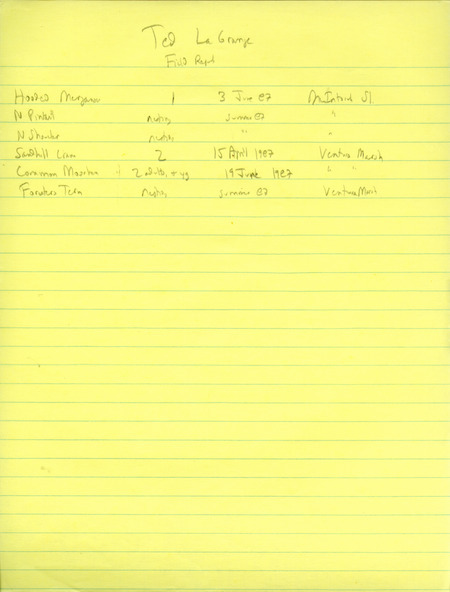 Ted LaGrange
Field Report
Hooded Merganser 1 3 June 87 McIntosh Sl.
N Pintail nesting summer 87 "
N Shoveler nesting " "
Sandhill Crane 2 15 April 1987 Ventura Marsh
Common Moorhen 2 adults, + yg 19 June 1987 " "
Forsters Tern nesting summer 87 Ventura Marsh